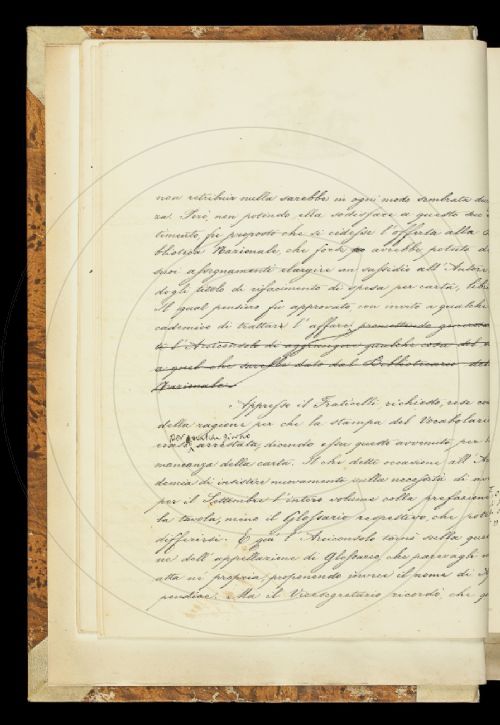 non retribuir nulla sarebbe in ogni modo sembrata du
za. Però, non potendo ella sodisfare a questo suo
timento, fu proposto che si cedesse l'offerta alla
blioteca Nazionale, che forse avrebbe potuto d
suoi assegnamenti elargire un sussidio all'Autore
degli titolo di rifacimento di spesa per carta, libr
Il qual pensiero fu approvato con invito a qualche
cademico di trattare l'affare,
a quel che sarebbe dato dal Bibliotecario del
Nazionale
Appresso il Fraticelli, richiesto, rese co
della ragione per che la stampa del Vocabolario
per qualche giorno
erasi arrestata, dicendo essa questo avvenuto per
mancanza della carta. Il che dette occasione all'A
demia di insistere nuovamente sulla necessità di av
per il Settembre l'intero volume colla prefazione
la tavola, meno il Glossario respettivo, che pote
differirsi. E qui l'Arciconsolo tornò sulla que
ne dell'appellazione di Glossario che parevagli
atta nè propria, proponendo invece il nome di A
pendice. Ma il Vicesegretario ricordò che q